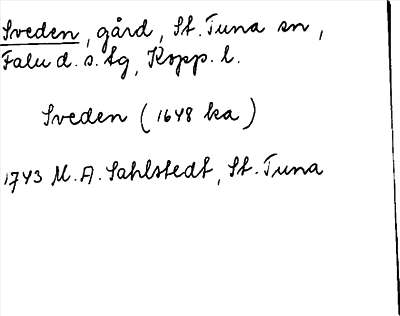 Sveden, gård, St. Tuna sn,
Falu d. s. lg, Kopp. l.
Sveden (1648 ka)
1743 M. A. Sahlstedt, St. Tuna